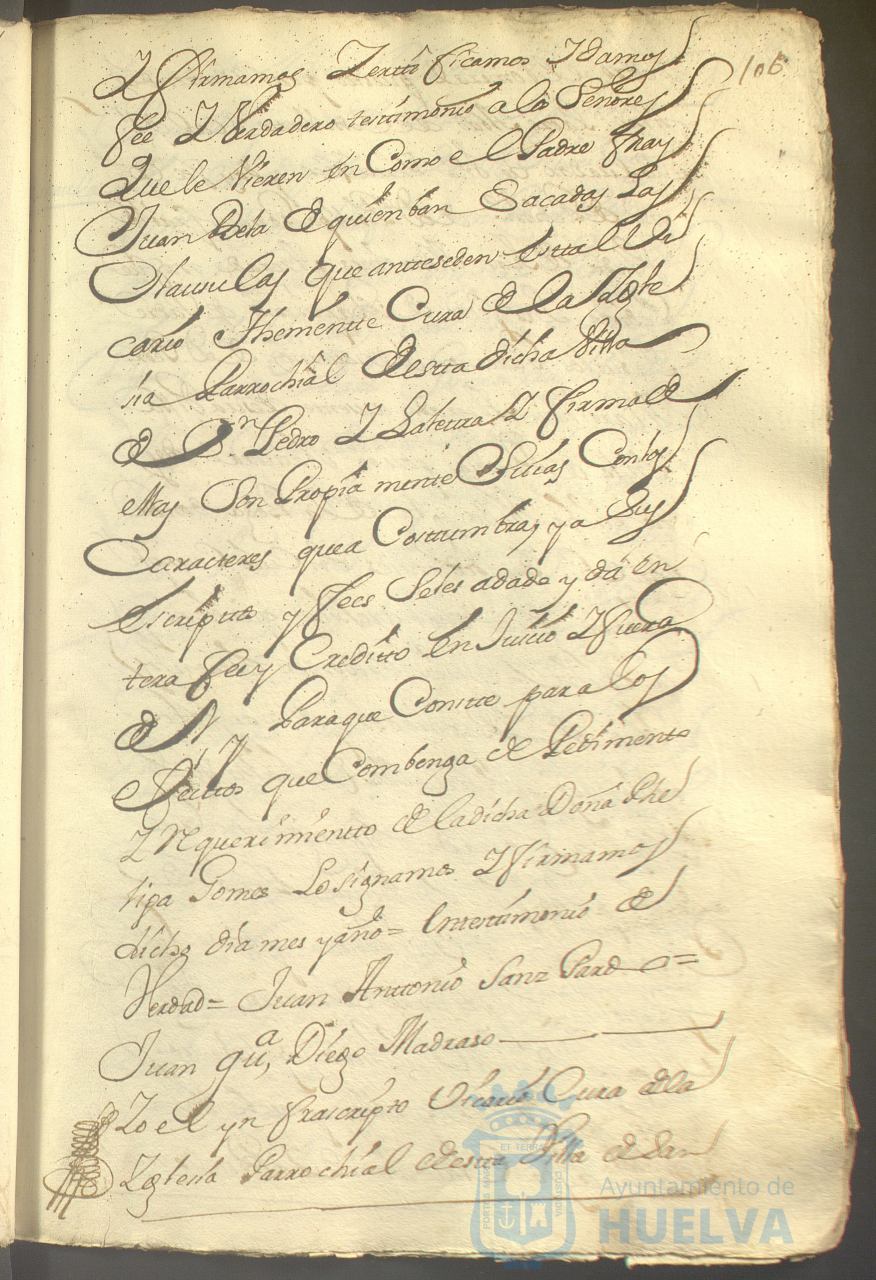 106
Y firmamos Zertificamos Y damos
fee Y Verdadero testimonio a los Señores
Que le Vieren en Como el Padre Fray
Juan de quien ban Sacadas Las
Clausulas que antteseden es tal Vi
cario Theniente Cura de la Ygle
sia Parrochial desta dicha Villa
de Sn. Pedro Y La letra Y firma de
ellas Son Propia mente Suias Con los
Caracteres que a Costumbra, y a Sus
Escriptos y Vees Se les a dado y da en
tera fee y Credito en Juicio Y fuera
de el, y Para que Conste para los
efecttos que Combenga de Pedimento
Y Requerimientto de la dicha Doña Phe
lipa Gomes Lo signamos Y firmamos
dicho dia mes y año= En testimonio de
Verdad= Juan Anttonio Sanz Pardo=
Juan gua, Diego Madraso
Yo el ynfrascripto Vicario Cura de la
Yglesia Parrochial desta Villa de San
PORTUS MARIS ET TERRAE CUSTODIA
Ayuntamiento de
HUELVA